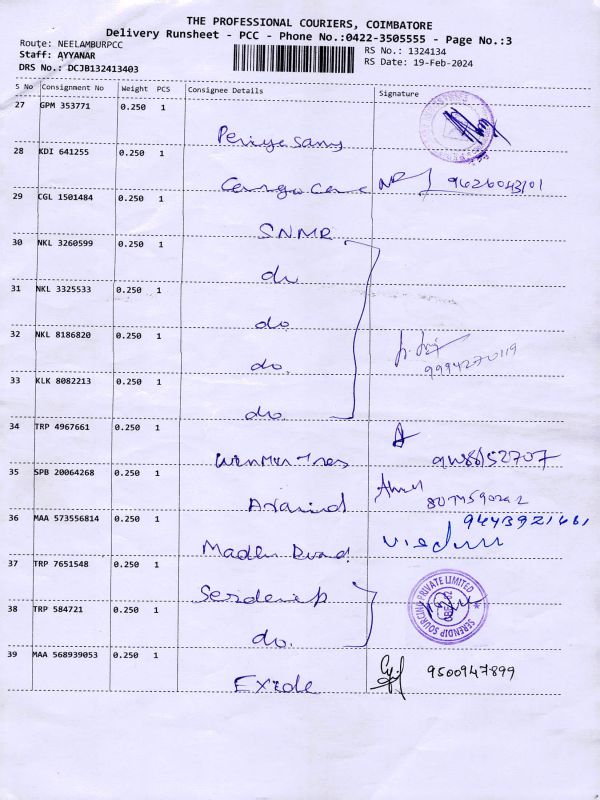 THE PROFESSIONAL COURIERS, COIMBATORE
Delivery Runsheet - PCC - Phone No.:0422-3505555 - Page No.:3
Route: NEELAMBURPCC
Staff: AYYANAR
DRS No.: DCJB132413403
RS No.: 1324134
RS Date: 19-Feb-2024
S No Consignment No Weight PCS Consignee Details Signature
27 GPM 353771 0.250 1
28 KDI 641255 0.250 1
9626043101
29 CGL 1501484 0.250 1
SNMR
30 NKL 3260599 0.250 1
do
31 NKL 3325533 0.250 1
do.
32 NKL 8186820 0.250 1
do.
9994270119
33 KLK 8082213 0.250 1
do.
34 TRP 4967661 0.250 1
35 SPB 20064268 0.250 1
Aravind
36 MAA 573556814 0.250 1
Madhu
37 TRP 7651548 0.250 1
Serdenip
SERENDIP SOURCING PRIVATE LIMITED
38 TRP 584721 0.250 1
do.
39 MAA 568939053 0.250 1
Exide
9500947899